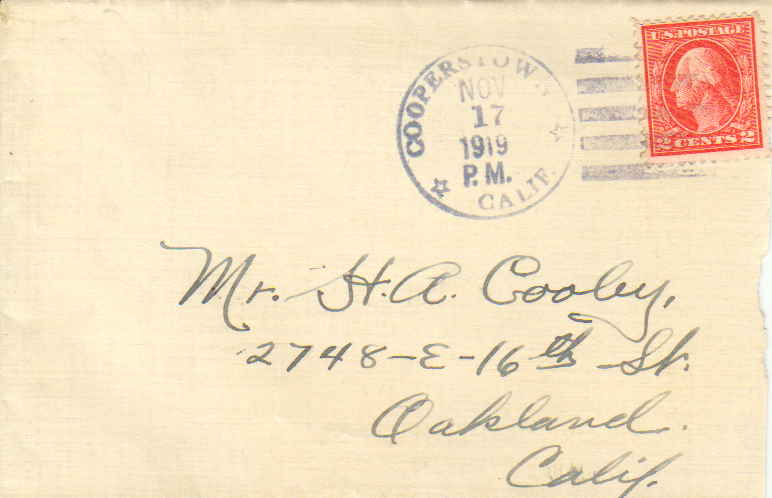 COOPERSTOWN
NOV
17
1919
P.M.
CALIF.
U.S. POSTAGE
2 CENTS 2
Mr. H. A. Cooley,
2748-E-16th St.
Oakland.
Calif.